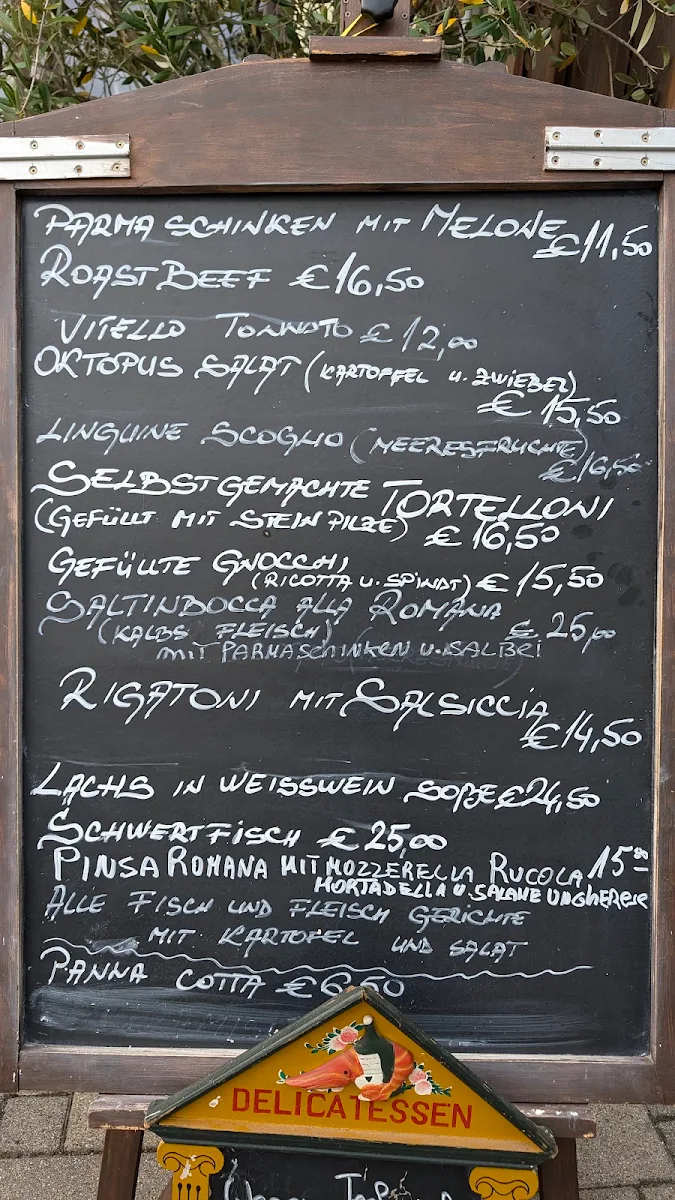 PARMA SCHINKEN MIT MELONE €11,50
ROASTBEEF €16,50
VITELLO TONNATO € 12,00
OKTOPUS SALAT (KARTOFFEL U. ZWIEBEL)
€ 15,50
LINGUINE SCOGLIO (MEERESFRÜCHTE)
€16,50
SELBSTGEMACHTE TORTELLONI
(GEFÜLLT MIT STEINPILZE) € 16,50
GEFÜLLTE GNOCCHI
(RICOTTA U. SPINAT) € 15,50
SALTINBOCCA ALLA ROMANA
(KALBS FLEISCH) € 25,00
MIT PARMASCHINKEN U. SALBEI
RIGATONI MIT SALSICCIA
€14,50
LACHS IN WEISSWEIN SOßE €24,50
SCHWERTFISCH € 25,00
PINSA ROMANA MIT MOZZERELLA RUCOLA 15
MORTADELLA U. SALAME UNGHERESE
ALLE FISCH UND FLEISCH GERICHTE
MIT KARTOFEL UND SALAT
PANNA COTTA €6,50
DELICATESSEN